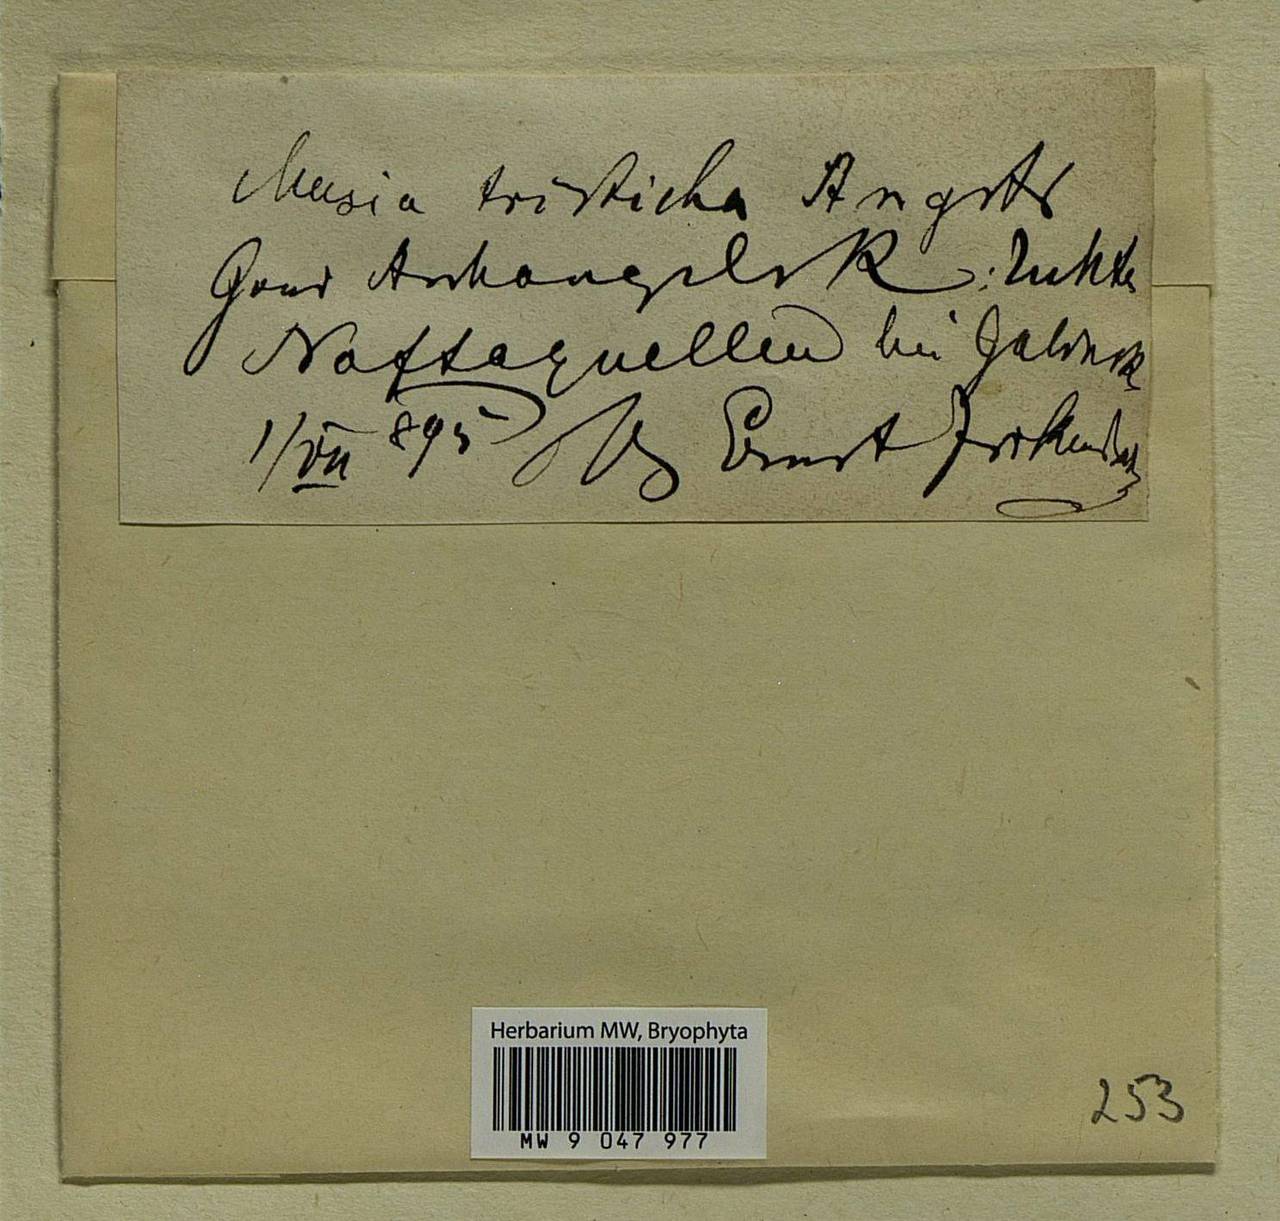 Meesia tristicha Angstr
Gouv Archangelsk: Uchta
Naftaquellen bei
1/VII 895 leg Ernst
Herbarium MW, Bryophyta
MW 9 047 977
253